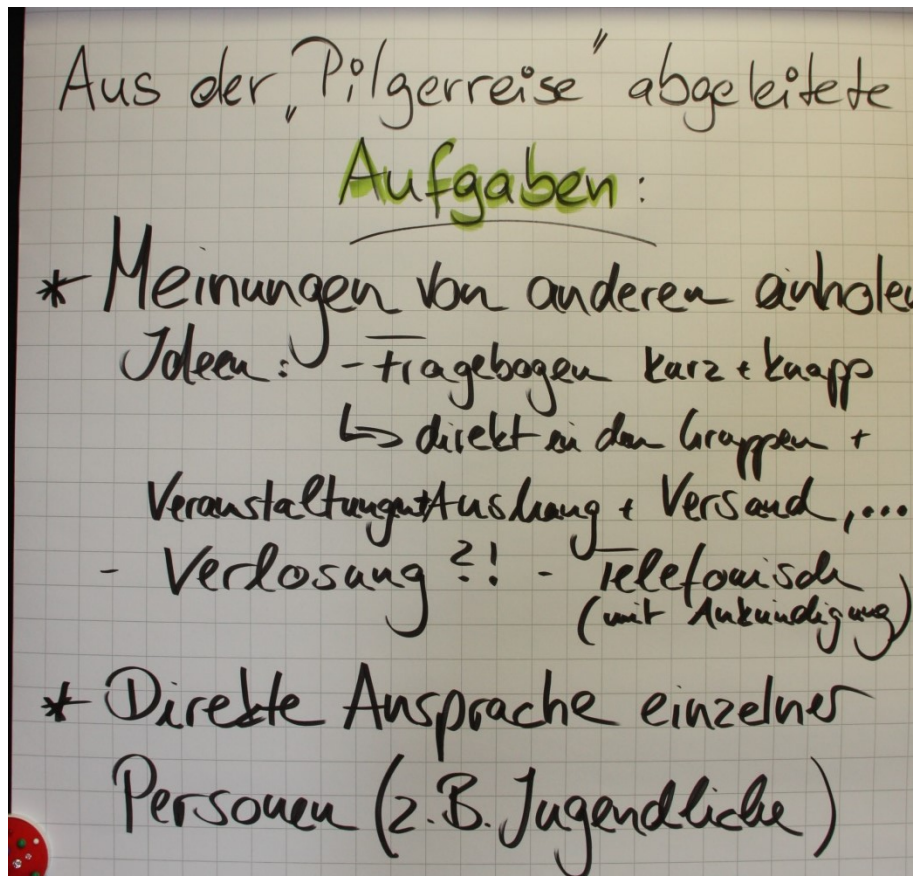 Aus der „Pilgerreise" abgeleitete
Aufgaben:
* Meinungen von anderen einholen
Ideen: - Fragebogen kurz + knapp
↳ direkt in den Gruppen +
Veranstaltungen + Aushang + Versand, ...
- Verlosung?! - Telefonisch
(mit Ankündigung)
* Direkte Ansprache einzelner
Personen (z.B. Jugendliche)